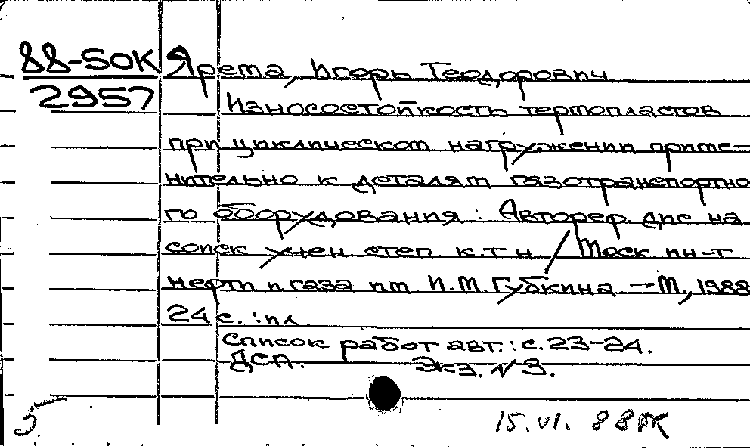 88-50К Ярема, Игорь Теодорович
2957 Износостойкость термопластов
при циклическом нагружении приме-
нительно к деталям газотранспортно
го оборудования : Автореф. дис на
соиск учен степ к.т.н / Моск ин-т
нефти и газа им И.М. Губкина —М, 1988
24 с. : ил
Список работ авт. : с. 23-24.
ДСП. Экз. № 3.
5 15.VI. 88